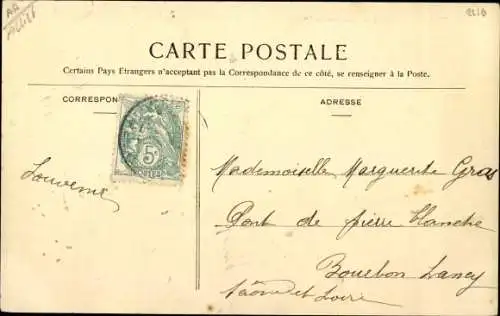 CARTE POSTALE
Certains Pays Etrangers n'acceptant pas la Correspondance de ce côté, se renseigner à la Poste.
CORRESPON
ADRESSE
5c
Mademoiselle Marguerite Gras
Pont de pierre blanche
Bourbon Lancy
Saône et Loire